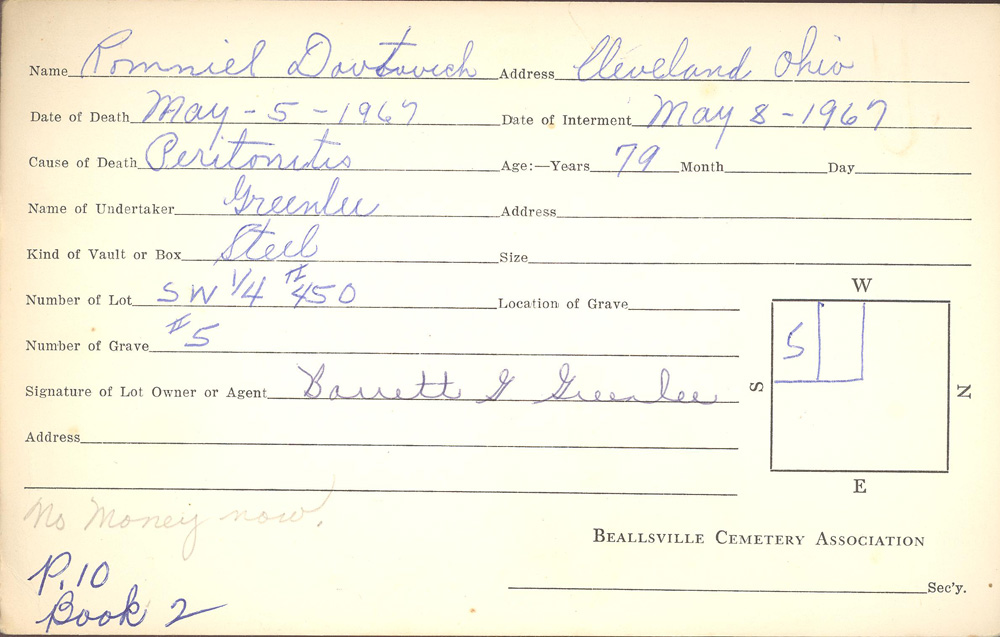 Name Romniel Davtovich Address Cleveland Ohio
Date of Death May - 5 - 1967 Date of Interment May 8 - 1967
Cause of Death Peritonitis Age:—Years 79 Month Day
Name of Undertaker Greenlee Address
Kind of Vault or Box Steel Size
Number of Lot SW 1/4 #450 Location of Grave
Number of Grave #5
Signature of Lot Owner or Agent Barrett G Greenlee
Address
W
5
S N
E
No Money now.
BEALLSVILLE CEMETERY ASSOCIATION
P.10
Book 2
Sec'y.